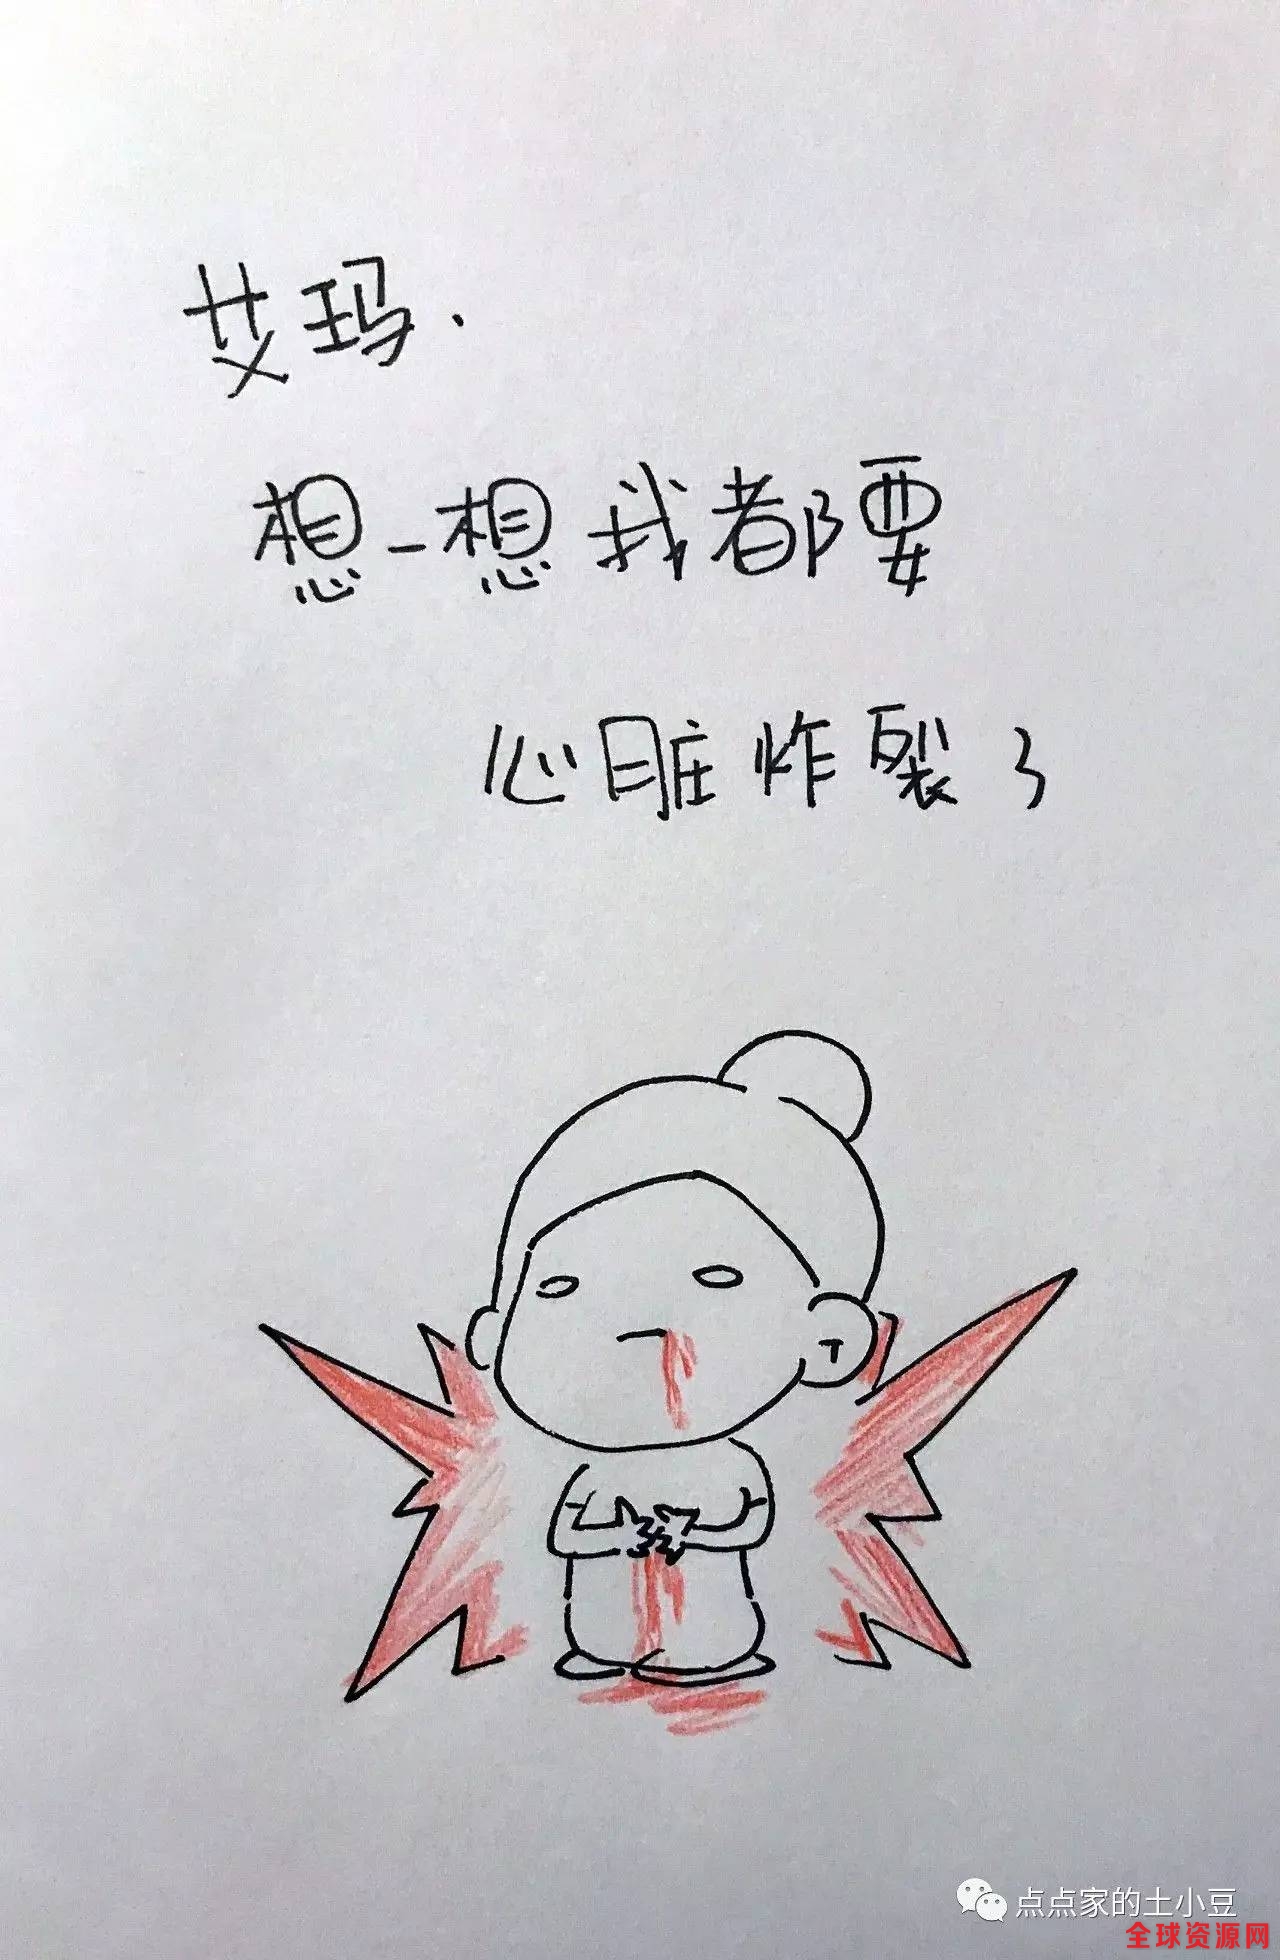 艾玛.
想一想我都要
心脏炸裂了
点点家的土小豆
全球资源网